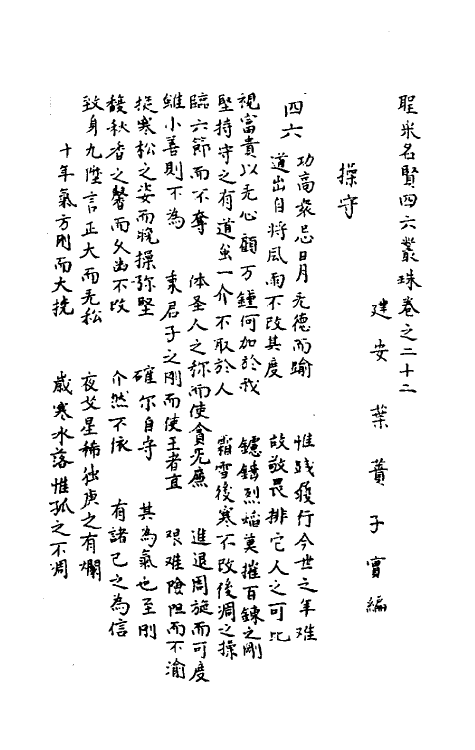 聖宋名賢四六叢珠卷之二十二
建安葉蕡子實編
操守
四六
功高衆忌日月无德而踰 惟踐履行今世之年难
道出自將風雨不改其度 故敬畏排它人之可比
視富貴以无心顧万鍾何加於我 鑪鑄烈焰莫摧百鍊之剛
堅持守之有道虽一介不取於人 霜雪後寒不改後凋之操
臨六節而不奪 体圣人之称而使貪无廉 進退周旋而可度
雖小善則不為 秉君子之刚而使王者直 艰难险阻而不渝
挺寒松之姿而晚操弥堅 確尔自守 其為氣也至刚
馥秋香之馨而久出不改 介然不依 有諸己之為信
致身九陛言正大而无私 夜艾星稀独庚之有爛
十年氣方刚而大挠 歲寒水落惟孤之不凋